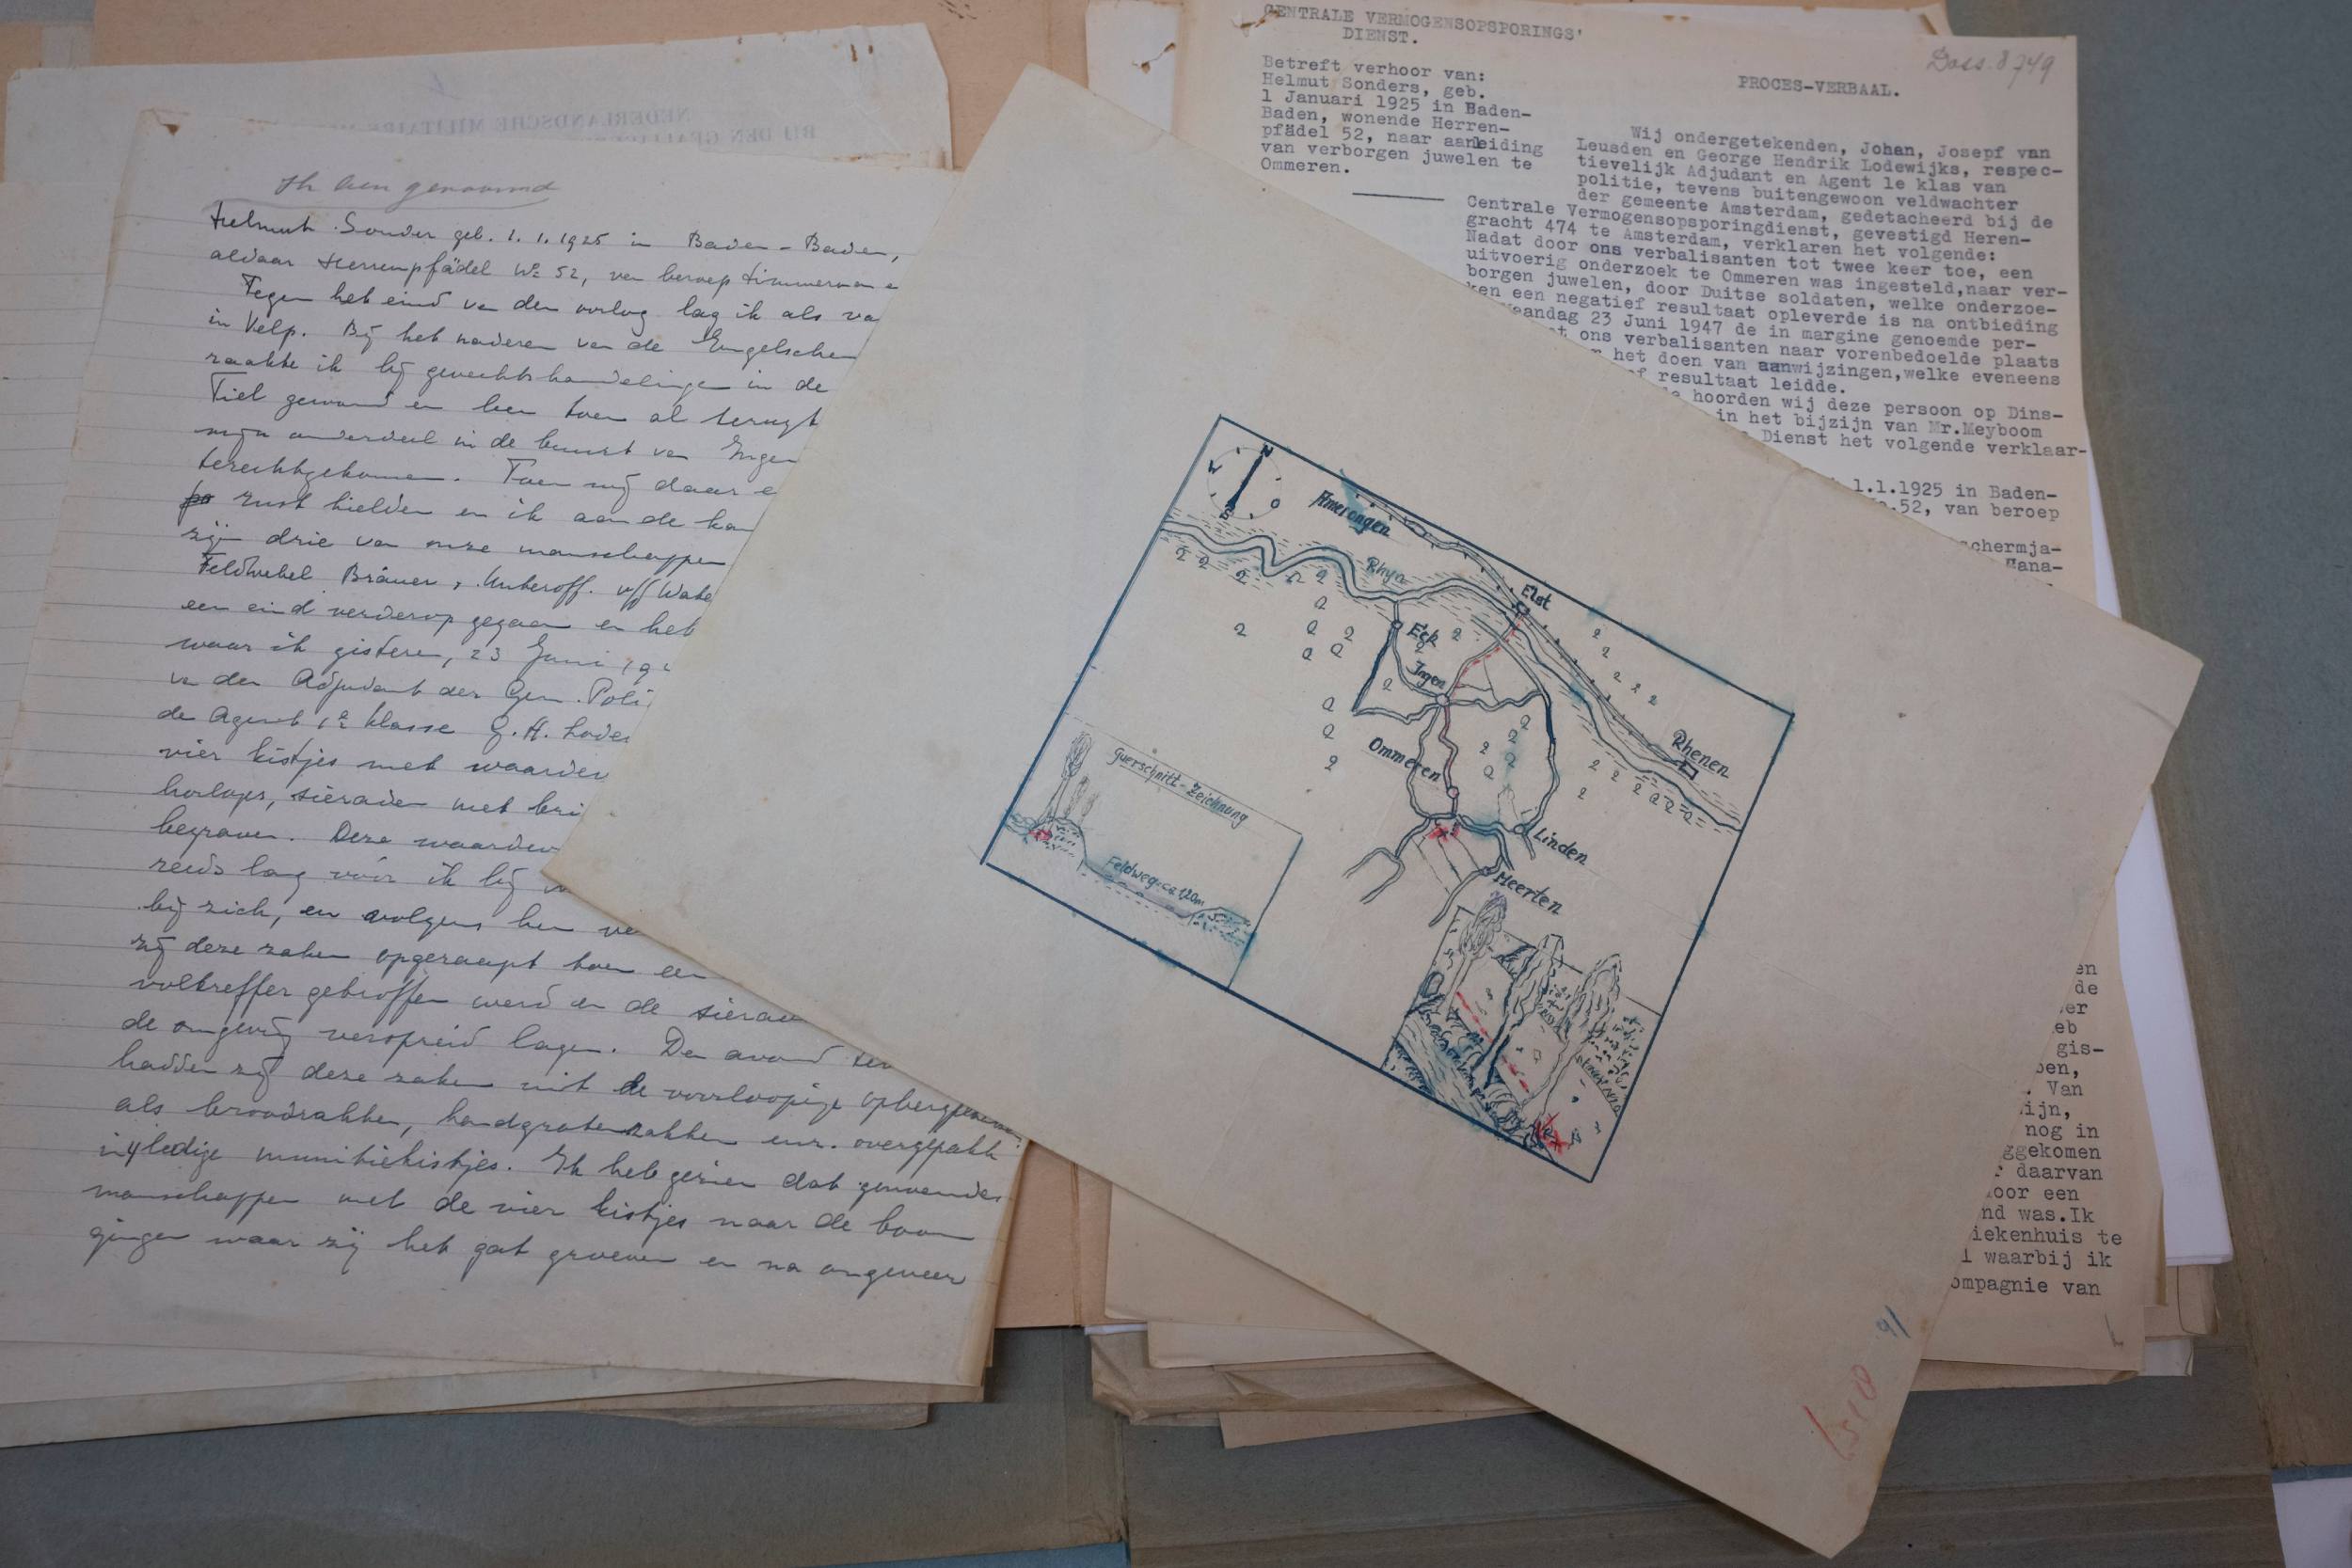 Ik ben genaamd
Helmut Sonder geb. 1.1.1925 in Baden-Baden,
aldaar Herrenpfädel No 52, van beroep timmerman
Tegen het eind van den oorlog lag ik als
in Velp. Bij het naderen van de Engelschen
raakte ik bij gevechtshandelingen in de
Tiel gewond en ben toen al
mijn onderdeel in de buurt van
terechtgekomen. Toen wij daar
rust hielden en ik aan de
zijn drie van onze manschappen
Feldwebel Bräuer, Unteroff. v/
een eind verderop gegaan en heb
waar ik gisteren, 23 Juni
van den Adjudant der Gem. Poli
de Agent 1e klasse G.H. Lode
vier kistjes met waarde
horloges, sieraden met bri
begraven. Deze waarde
reeds lang vóór ik bij
bij zich, en volgens hen
zij deze zaken opgeraapt toen een
voltreffer getroffen werd en de siera
de omgeving verspreid lagen. De avond
hadden zij deze zaken uit de voorloopige
als broodzakken, handgranatenzakken enz. overgepakt
in ledige munitiekistjes. Ik heb gezien dat genoemde
manschappen met de vier kistjes naar de boom
gingen waar zij het gat groeven en na ongeveer
NEDERLANDSCHE MILITAIRE
BIJ DEN
CENTRALE VERMOGENSOPSPORINGS'
DIENST.
Doss. 8749
Betreft verhoor van:
Helmut Sonders, geb.
1 Januari 1925 in Baden-
Baden, wonende Herren-
pfädel 52, naar aanleiding
van verborgen juwelen te
Ommeren.
PROCES-VERBAAL.
Wij ondergetekenden, Johan, Josepf van
Leusden en George Hendrik Lodewijks, respec-
tievelijk Adjudant en Agent 1e klas van
politie, tevens buitengewoon veldwachter
der gemeente Amsterdam, gedetacheerd bij de
Centrale Vermogensopsporingdienst, gevestigd Heren-
gracht 474 te Amsterdam, verklaren het volgende:
Nadat door ons verbalisanten tot twee keer toe, een
uitvoerig onderzoek te Ommeren was ingesteld,naar ver-
borgen juwelen, door Duitse soldaten, welke onderzoe-
ken een negatief resultaat opleverde is na ontbieding
aandag 23 Juni 1947 de in margine genoemde per-
ons verbalisanten naar vorenbedoelde plaats
het doen van aanwijzingen,welke eveneens
resultaat leidde.
hoorden wij deze persoon op Dins-
in het bijzijn van Mr.Meyboom
Dienst het volgende verklaar-
1.1.1925 in Baden-
52, van beroep
schermja-
en
de
er
eb
gis-
en,
Van
ijn,
nog in
ggekomen
daarvan
oor een
nd was.Ik
iekenhuis te
l waarbij ik
ompagnie van
N
W
O
S
Amerongen
Rhyn
Elst
Eck
Ingen
Rhenen
Ommeren
Linden
Meerten
Querschnitt-Zeichnung
Feldweg-ca 120m
91